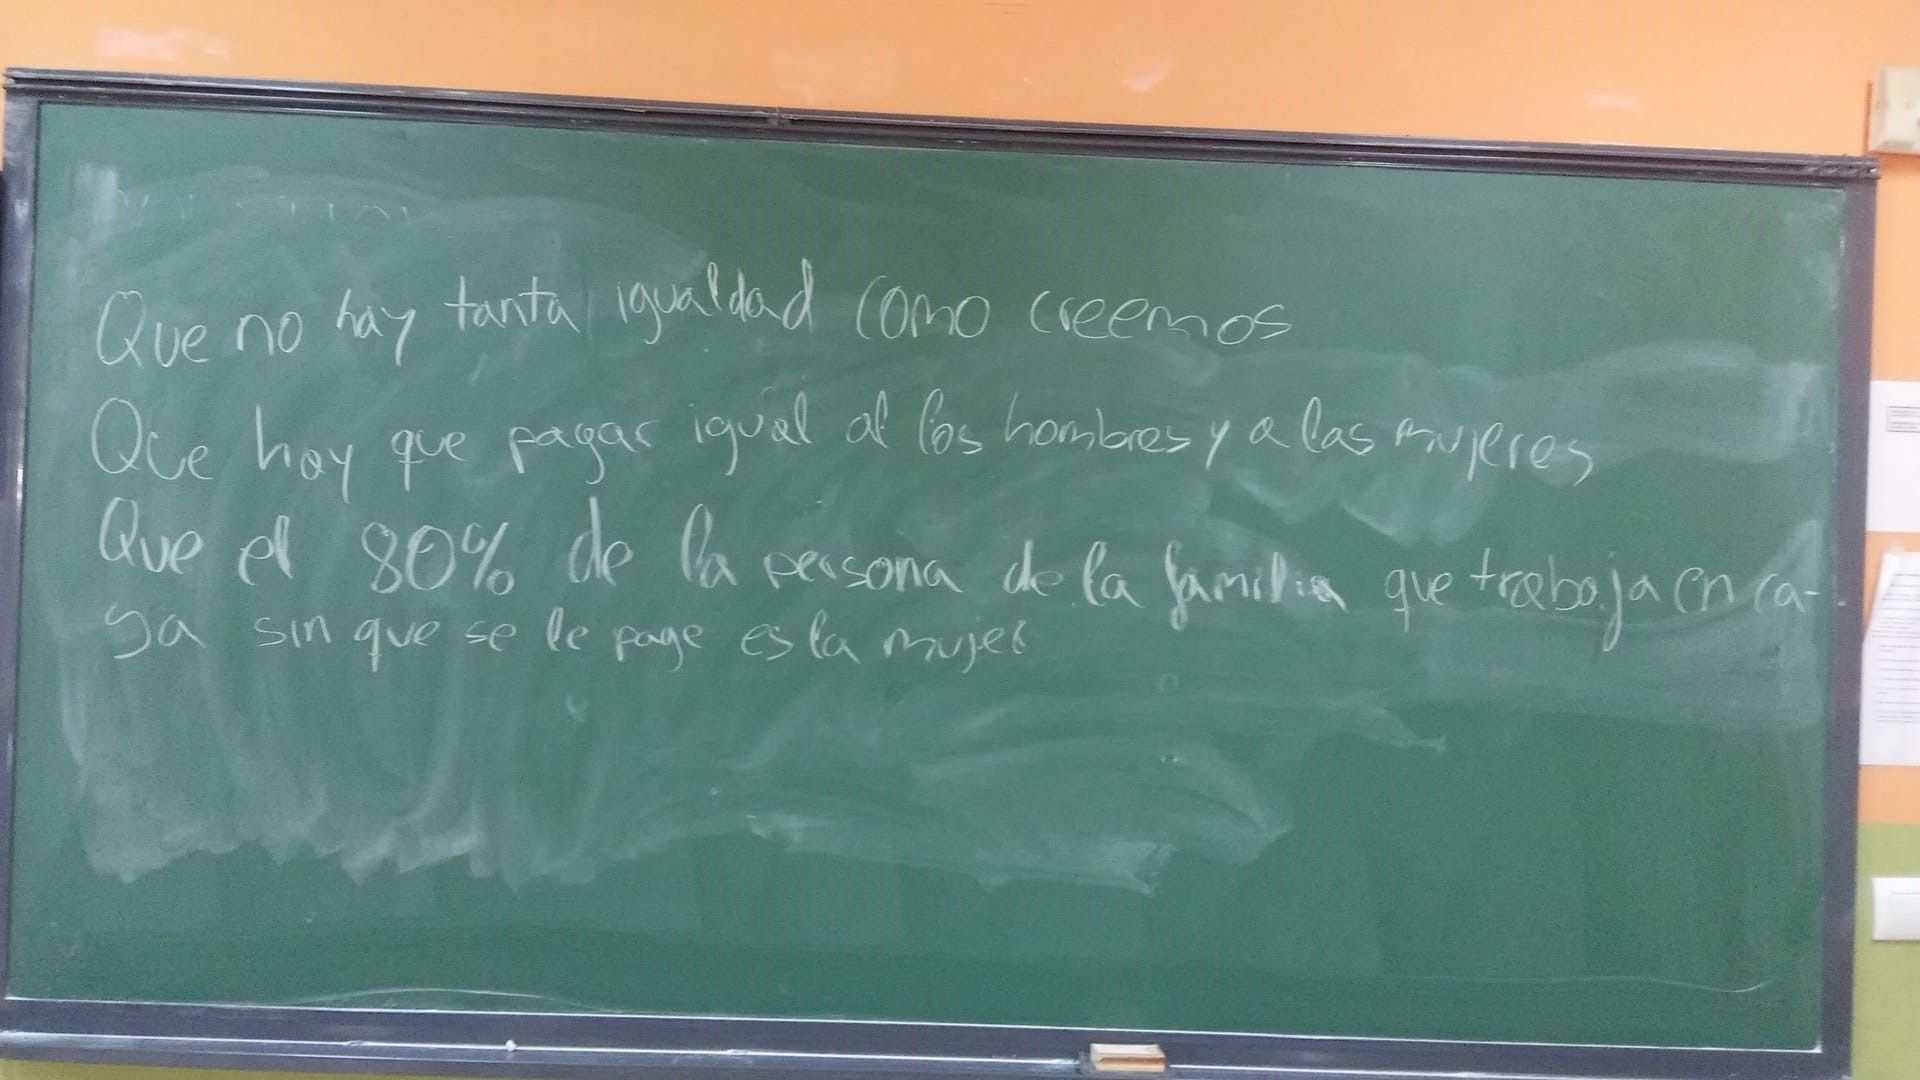 Que no hay tanta igualdad como creemos
Que hay que pagar igual al los hombres y a las mujeres
Que el 80% de la persona de la familia que trabaja en ca-
sa sin que se le page es la mujer